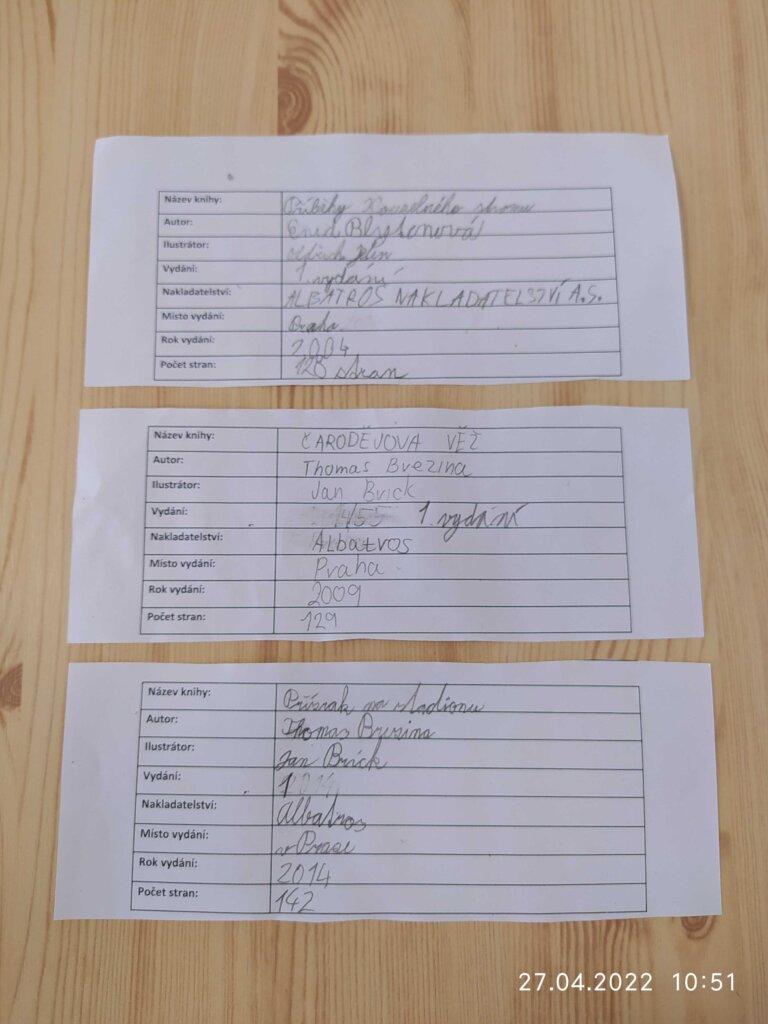 Název knihy: Příběhy Kouzelného stromu
Autor: Enid Blytonová
Ilustrátor: Oldřich Jelen
Vydání: 1. vydání
Nakladatelství: ALBATROS NAKLADATELSTVÍ A.S.
Místo vydání: Praha
Rok vydání: 2004
Počet stran: 128 stran
Název knihy: ČARODĚJOVA VĚŽ
Autor: Thomas Brezina
Ilustrátor: Jan Brick
Vydání: 1. vydání
Nakladatelství: Albatros
Místo vydání: Praha
Rok vydání: 2009
Počet stran: 129
Název knihy: Přízrak na stadionu
Autor: Thomas Brezina
Ilustrátor: Jan Brick
Vydání: 1
Nakladatelství: Albatros
Místo vydání: v Praze
Rok vydání: 2014
Počet stran: 142
27.04.2022 10:51